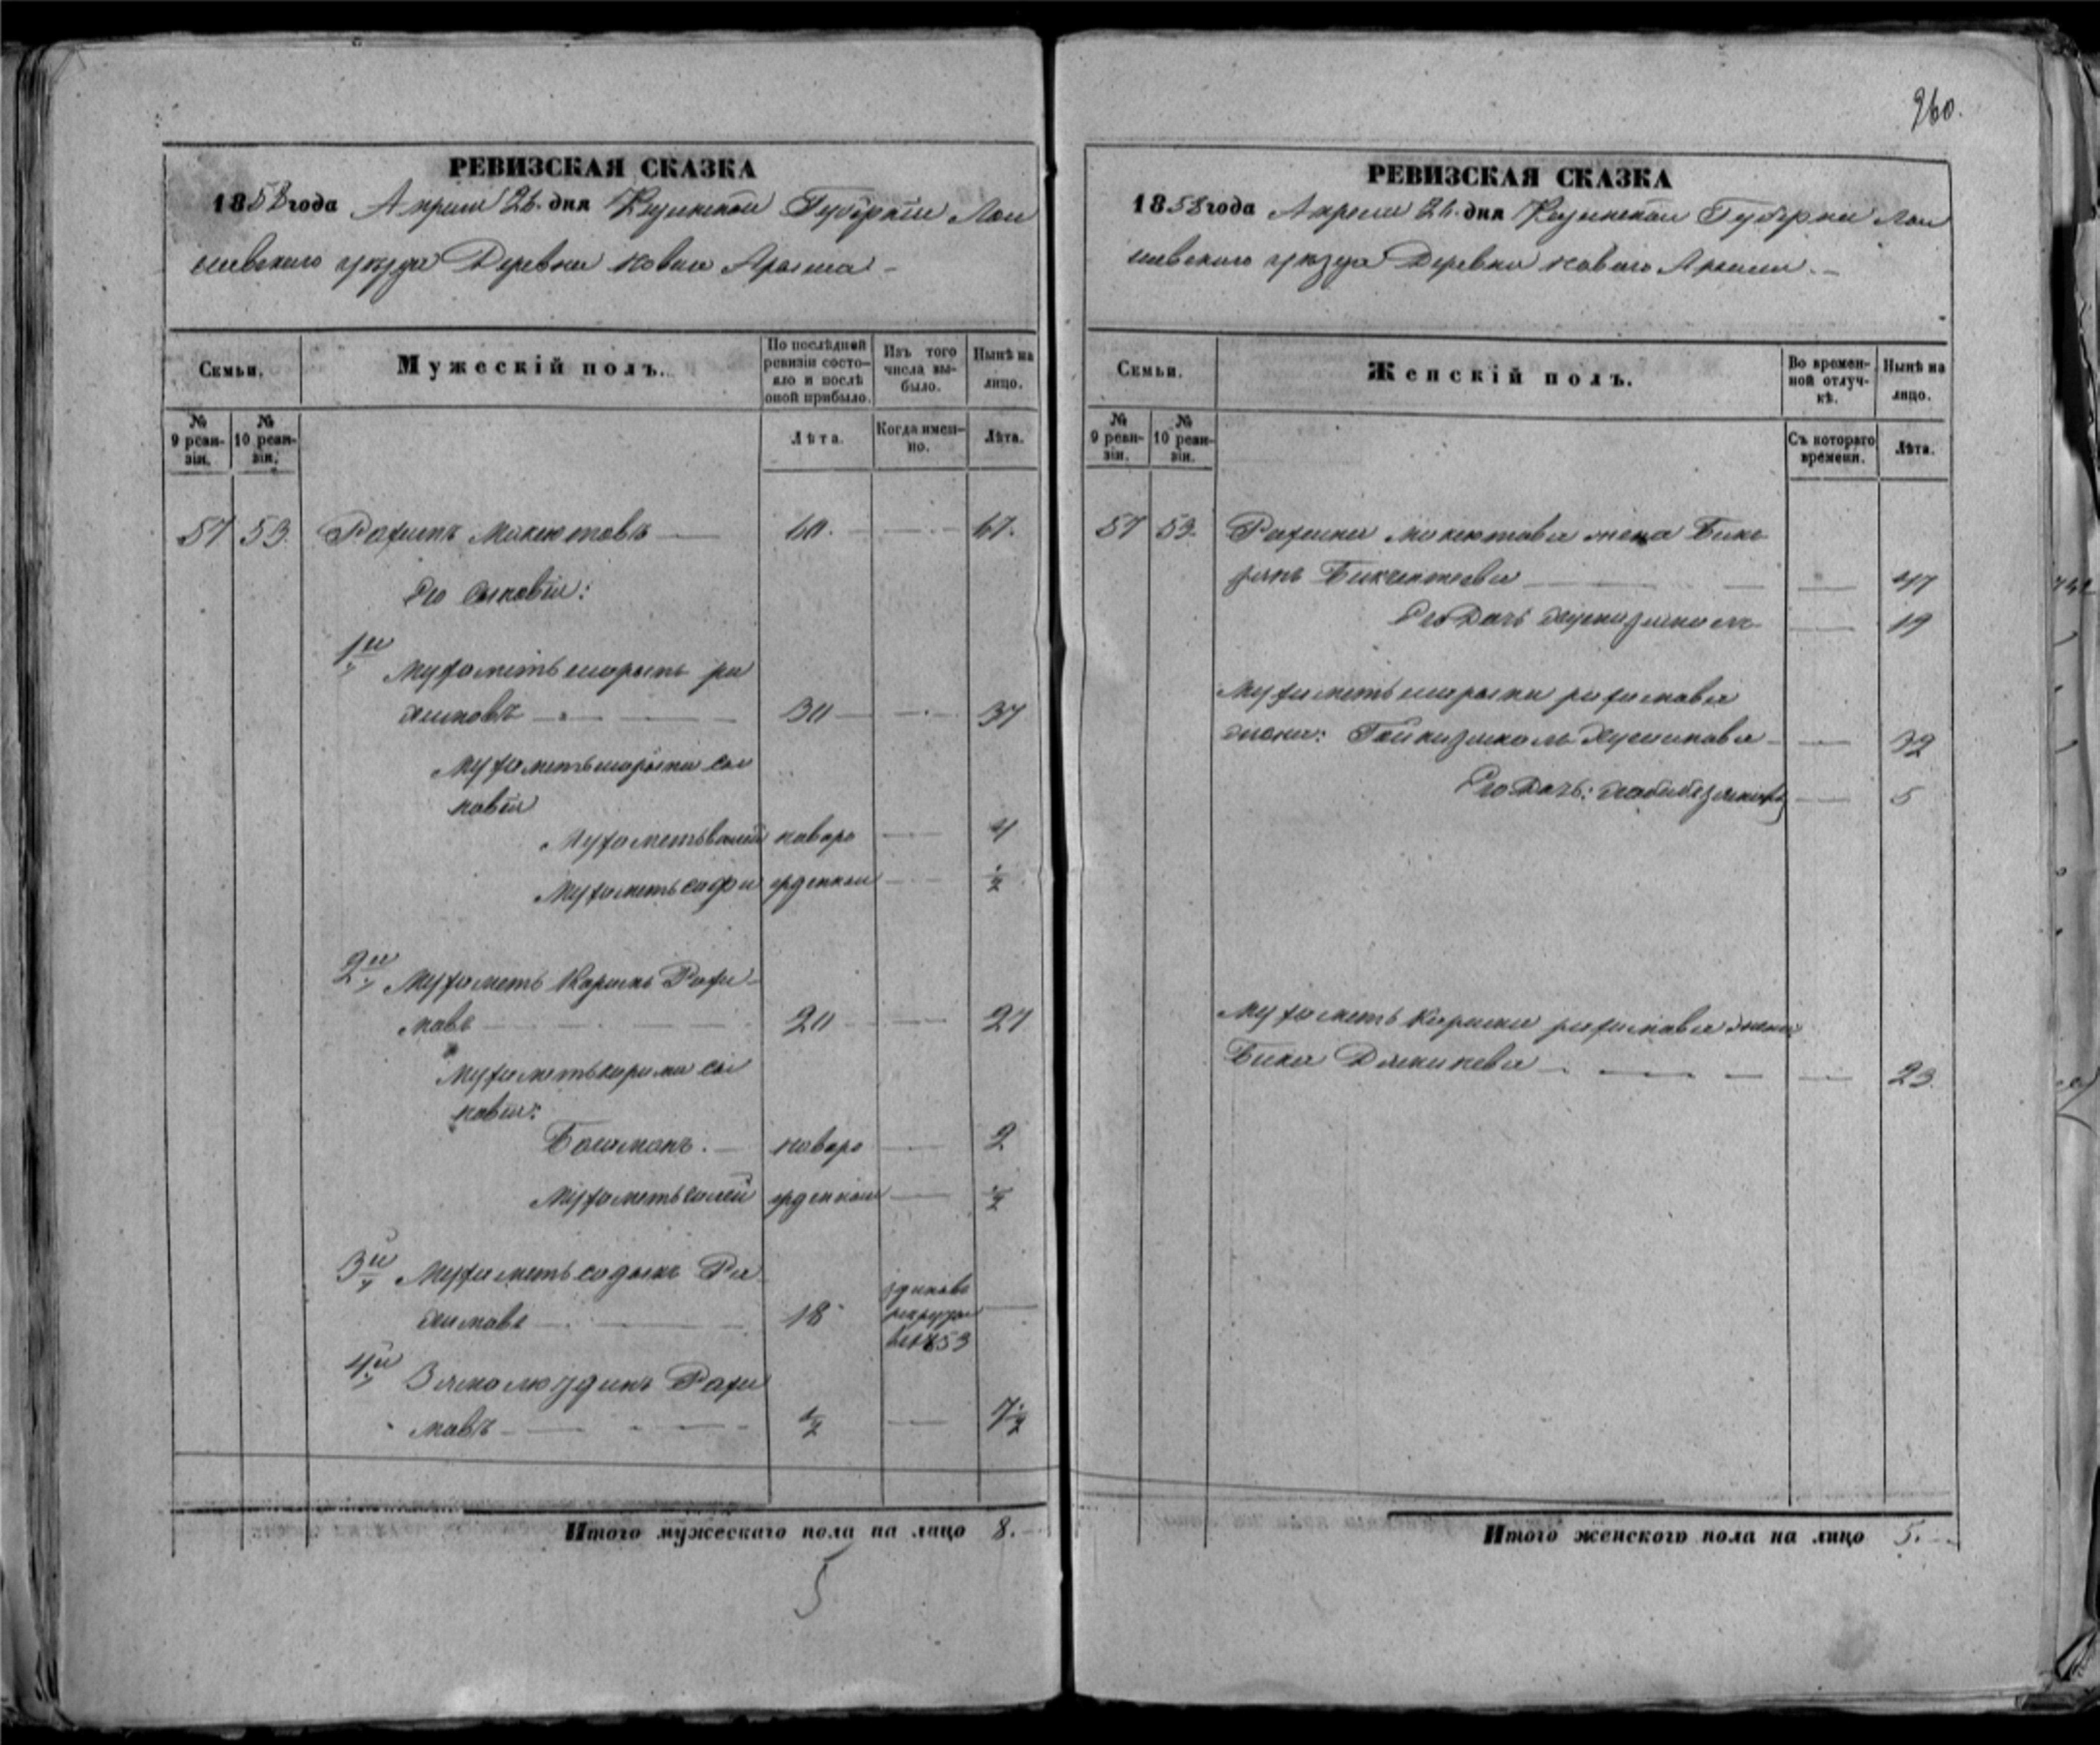 260.
РЕВИЗСКАЯ СКАЗКА
1858 года Апреля 26 дня Казанской Губернии Лаи
шевского уезда Деревни Новаго Арыша
Семьи.
Мужескій полъ.
По послѣдней ревизіи состояло и послѣ оной прибыло.
Изъ того числа выбыло.
Нынѣ на лицо.
№ 9 ревизіи.
№ 10 ревизіи.
Лѣта.
Когда именно.
Лѣта.
57 53. Рахимъ Мокеютовъ 60. 67.
Его сыновья:
1й Мухаметьшарыпъ Ра
химовъ 30 37
Мухаметьшарыпа сы
новья
Мухаметьвалей новоро 4
Мухаметьсафа жденной 1/2
2й Мухаметь Каримъ Рахи
мовъ 20 27
Мухаметькарима сы
новья:
Башманъ. новоро 2
Мухаметьсалей жденной 1/2
3й Мухаметьсадыкъ Ра
химовъ 18
рекруты
в 1853
4й Рахи
мовъ 1/2 7 1/2
Итого мужескаго пола на лицо 8.
5
РЕВИЗСКАЯ СКАЗКА
1858 года Апреля 26 дня Казанской Губернии Лаи
шевского уезда Деревни Новаго Арыша
Семьи.
Женскій полъ.
Во временной отлучкѣ.
Нынѣ на лицо.
№ 9 ревизіи.
№ 10 ревизіи.
Съ котораго времени.
Лѣта.
57 53. Рахима Мокеютова жена Бики
47
Его дочь 19
Мухаметьшарыпа Рахимова
жена: 32
Его дочь: 5
Мухаметь Карима Рахимова жена
Бика 23.
Итого женского пола на лицо 5.